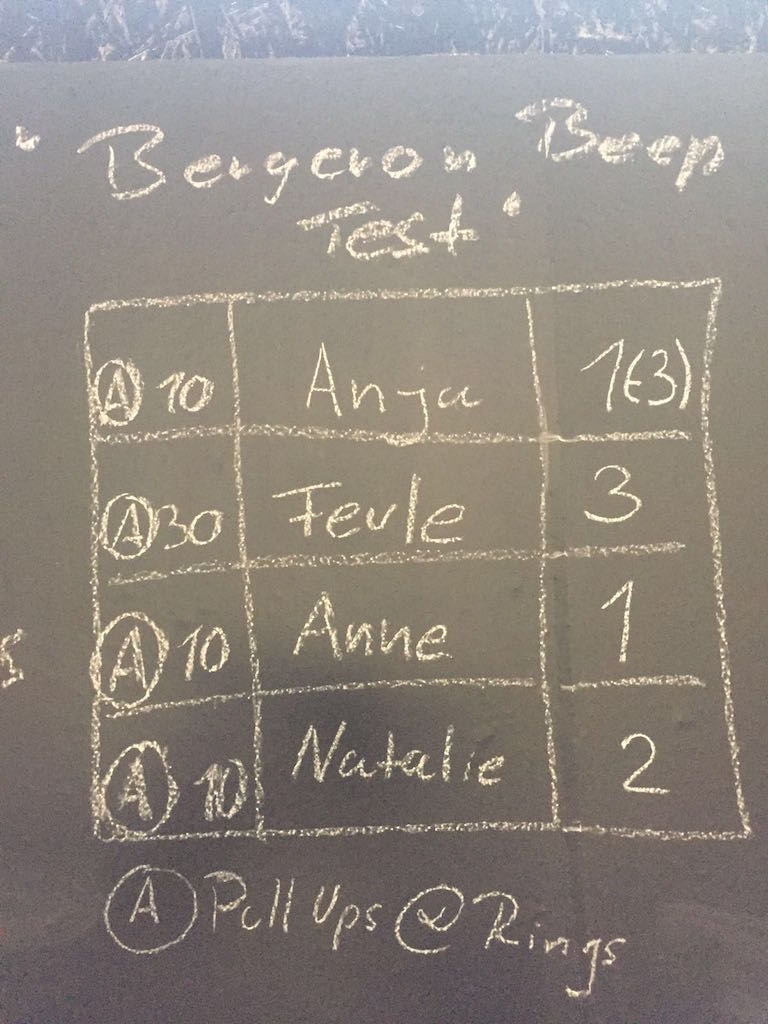 "Bergeron Beep
Test"
Ⓐ 10 Anja 1(3)
Ⓐ 30 Feule 3
Ⓐ 10 Anne 1
Ⓐ 10 Natalie 2
Ⓐ Pull Ups @ Rings